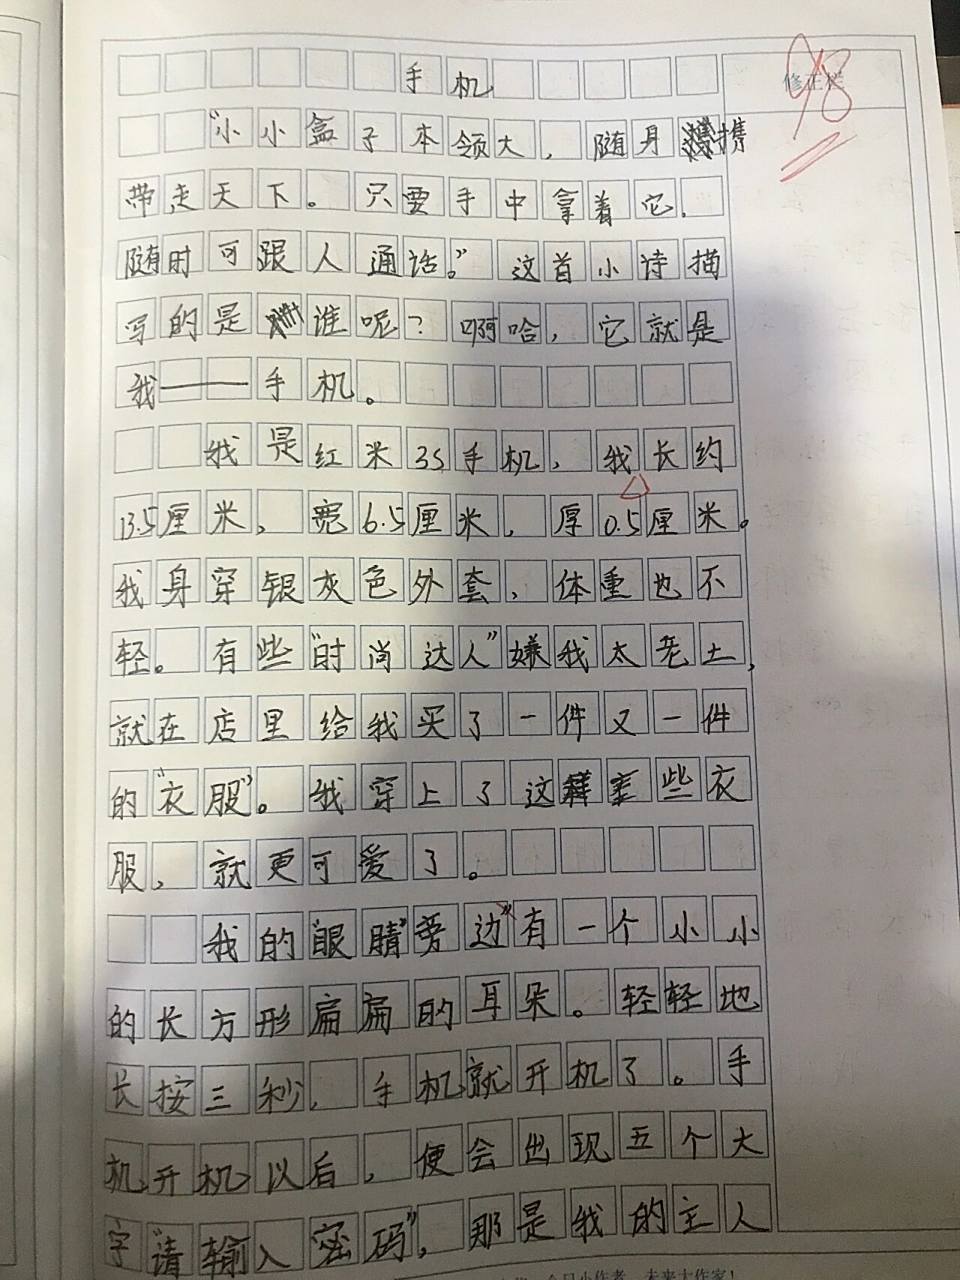 手机
修正栏
98
“小小盒子本领大，随身携
带走天下。只要手中拿着它，
随时可跟人通话。”这首小诗描
写的是谁呢？啊哈，它就是
我——手机。
我是红米3S手机，我长约
13.5厘米，宽6.5厘米，厚0.5厘米。
我身穿银灰色外套，体重也不
轻。有些“时尚达人”嫌我太老土，
就在店里给我买了一件又一件
的“衣服”。我穿上了这些衣
服，就更可爱了。
我的“眼睛”旁边有一个小小
的长方形扁扁的耳朵。轻轻地
长按三秒，手机就开机了。手
机开机以后，便会出现五个大
字“请输入密码”，那是我的主人
今日小作者，未来大作家！